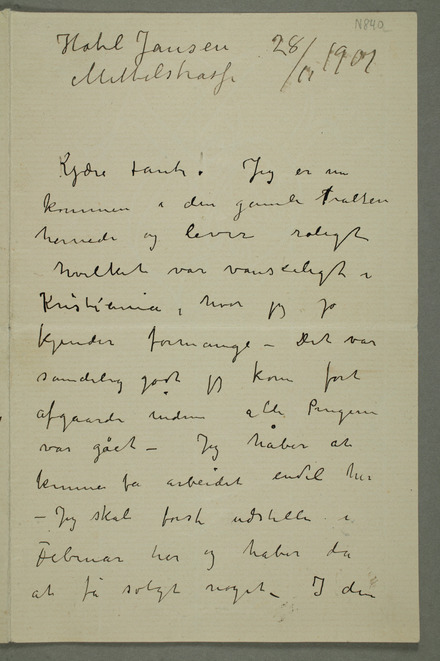 N840
Hotel Jansen 28/11 1901
Mittelstrasse
Kjære tante! Jeg er nu
kommen i den gamle Tralten
hernede og lever roligt
hvilket var vanskeligt i
Kristiania, hvor jeg jo
kjender formange – Det var
sandelig godt jeg kom fort
afgaarde inden alle Pengene
var gået – Jeg håber at
kunne få arbeidet endel her
– Jeg skal først udstille i
Februar her og haber da
at få solgt noget – I den